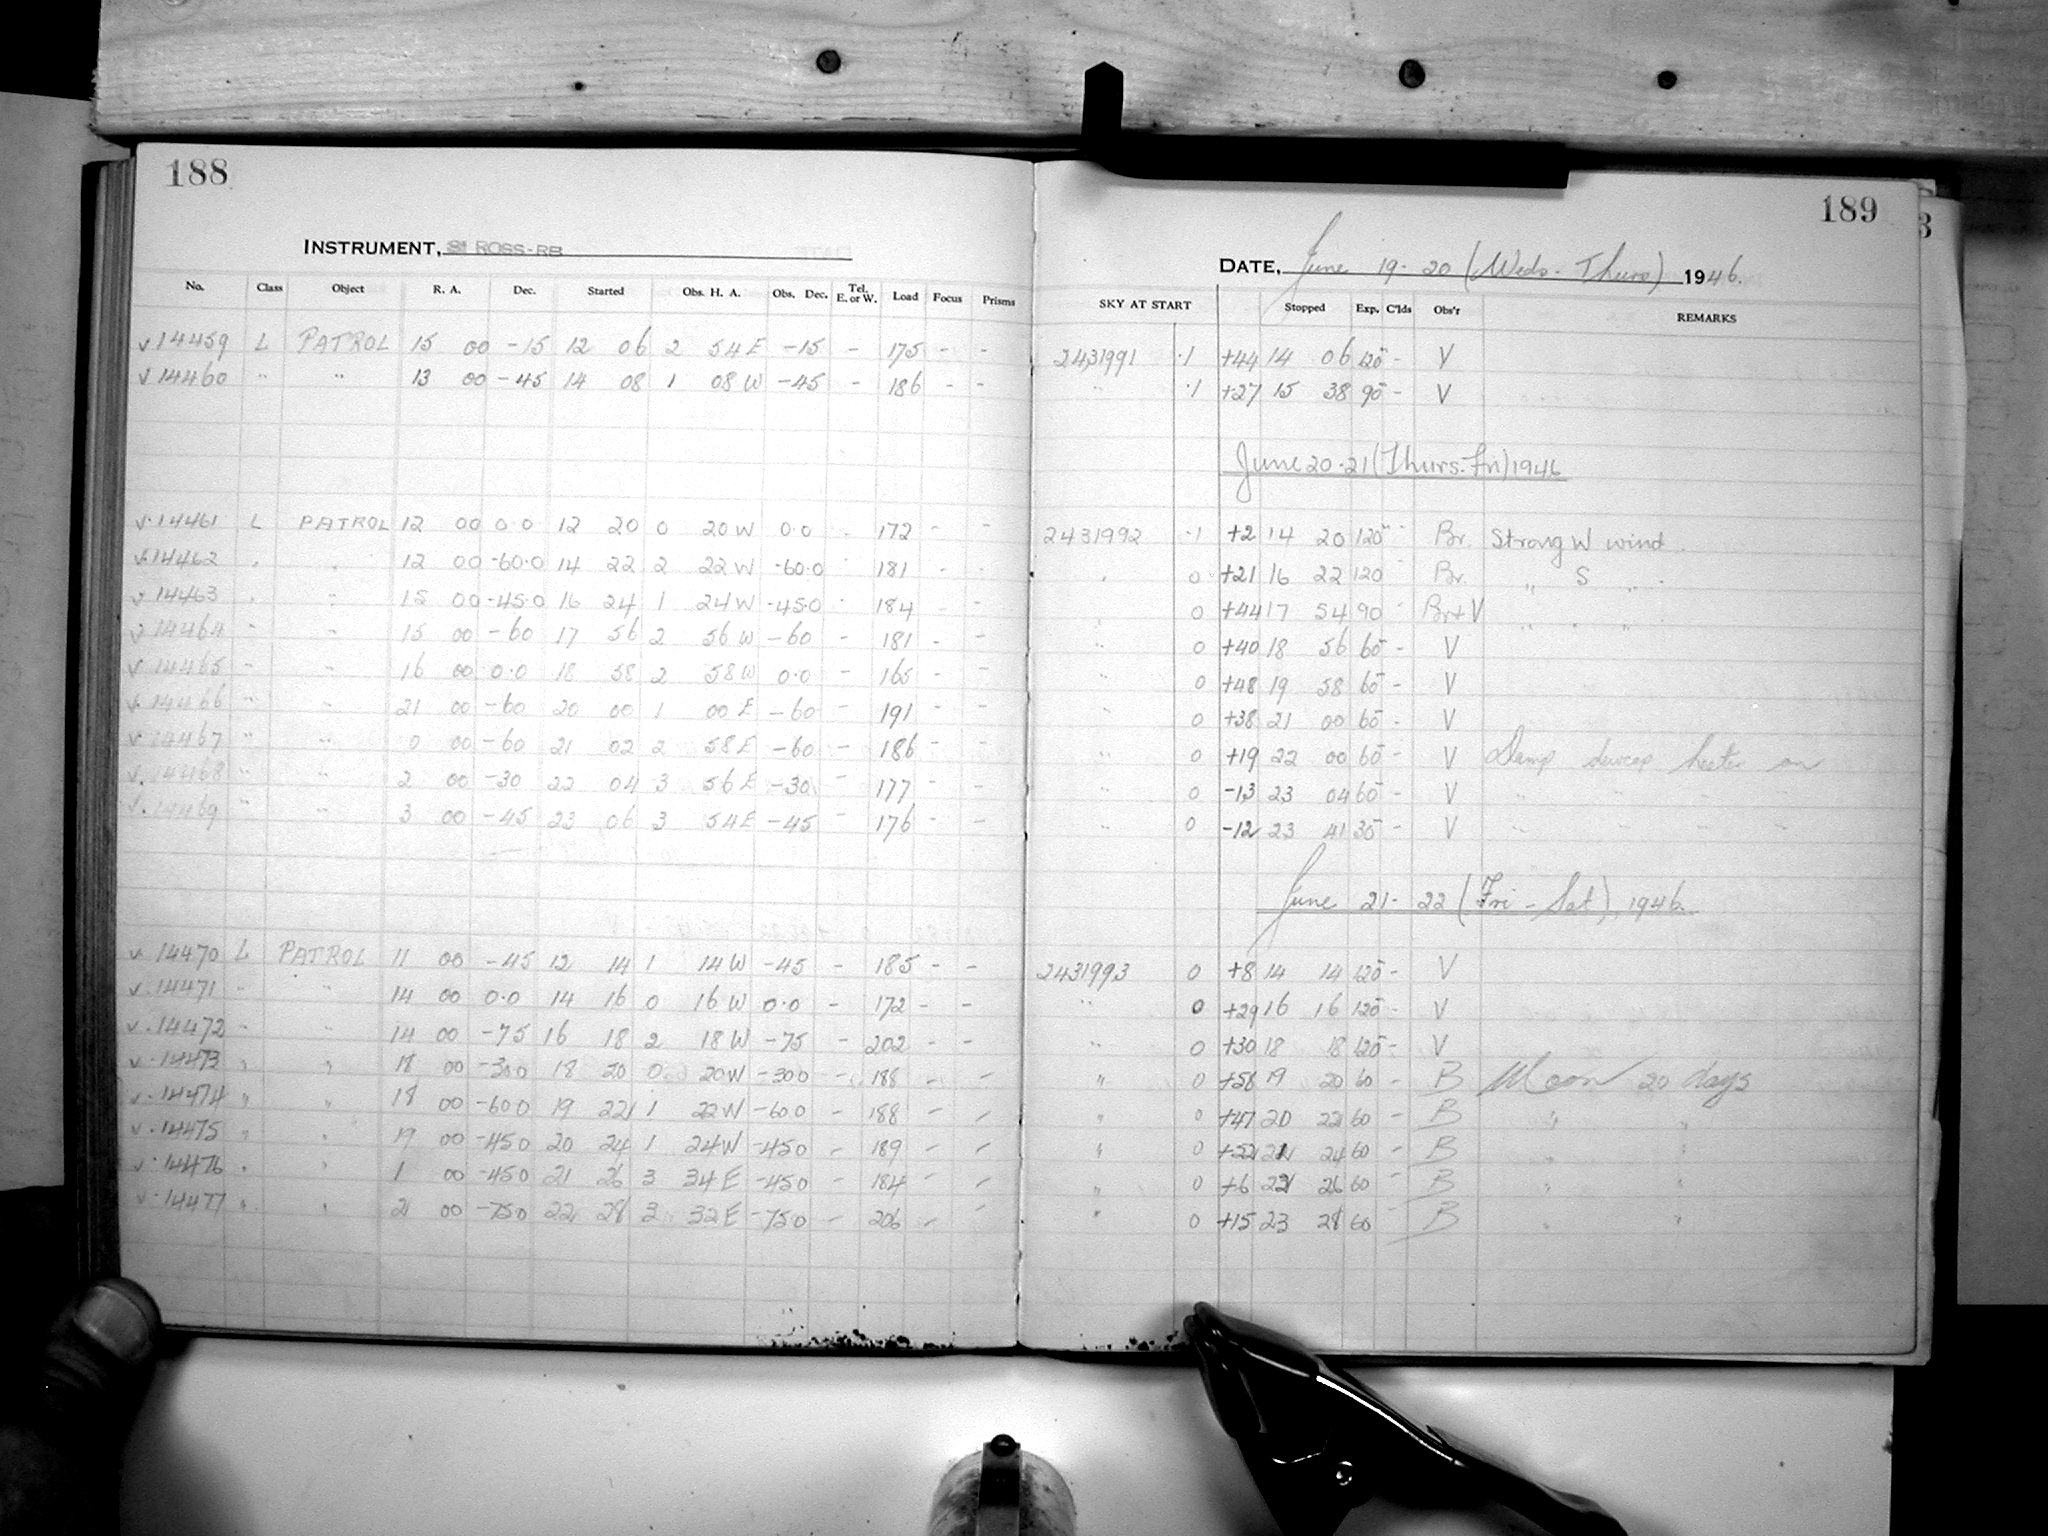 188
189
INSTRUMENT, ROSS-RB
DATE, June 19-20 (Weds-Thurs) 1946.
No. Class Object R. A. Dec. Started Obs. H. A. Obs. Dec. Tel. E. or W. Load Focus Prisms SKY AT START Stopped Exp. C'lds Obs'r REMARKS
v 14459 L PATROL 15 00 -15 12 06 2 54 E -15 - 175 - - 2431991 .1 +44 14 06 120 - V
v 14460 " " 13 00 -45 14 08 1 08 W -45 - 186 - - " .1 +27 15 38 90 - V
June 20-21 (Thurs-Fri) 1946
v 14461 L PATROL 12 00 0.0 12 20 0 20 W 0.0 - 172 - - 2431992 .1 +2 14 20 120 - Br. Strong W wind
v 14462 " " 12 00 -60.0 14 22 2 22 W -60.0 - 181 - - " 0 +21 16 22 120 - Br. " S "
v 14463 " " 15 00 -45.0 16 24 1 24 W -45.0 - 184 - - " 0 +44 17 54 90 - Br+V " " "
v 14464 " " 15 00 -60 17 56 2 56 W -60 - 181 - - " 0 +40 18 56 60 - V
v 14465 " " 16 00 0.0 18 58 2 58 W 0.0 - 165 - - " 0 +48 19 58 60 - V
v 14466 " " 21 00 -60 20 00 1 00 E -60 - 191 - - " 0 +38 21 00 60 - V
v 14467 " " 0 00 -60 21 02 2 58 E -60 - 186 - - " 0 +19 22 00 60 - V Damp dewcap heater on
v 14468 " " 2 00 -30 22 04 3 56 E -30 - 177 - - " 0 -13 23 04 60 - V " " " "
v 14469 " " 3 00 -45 23 06 3 54 E -45 - 176 - - " 0 -12 23 41 35 - V " " " "
June 21-22 (Fri-Sat), 1946
v 14470 L PATROL 11 00 -45 12 14 1 14 W -45 - 185 - - 2431993 0 +8 14 14 120 - V
v 14471 " " 14 00 0.0 14 16 0 16 W 0.0 - 172 - - " 0 +29 16 16 120 - V
v 14472 " " 14 00 -75 16 18 2 18 W -75 - 202 - - " 0 +30 18 18 120 - V
v 14473 " " 18 00 -300 18 20 0 20 W -300 - 188 - - " 0 +58 19 20 60 - B Moon 20 days
v 14474 " " 18 00 -600 19 22 1 22 W -600 - 188 - - " 0 +47 20 22 60 - B " "
v 14475 " " 19 00 -450 20 24 1 24 W -450 - 189 - - " 0 +52 21 24 60 - B " "
v 14476 " " 1 00 -450 21 26 3 34 E -450 - 184 - - " 0 +6 22 26 60 - B " "
v 14477 " " 21 00 -750 22 28 3 32 E -750 - 206 - - " 0 +15 23 28 60 - B " "